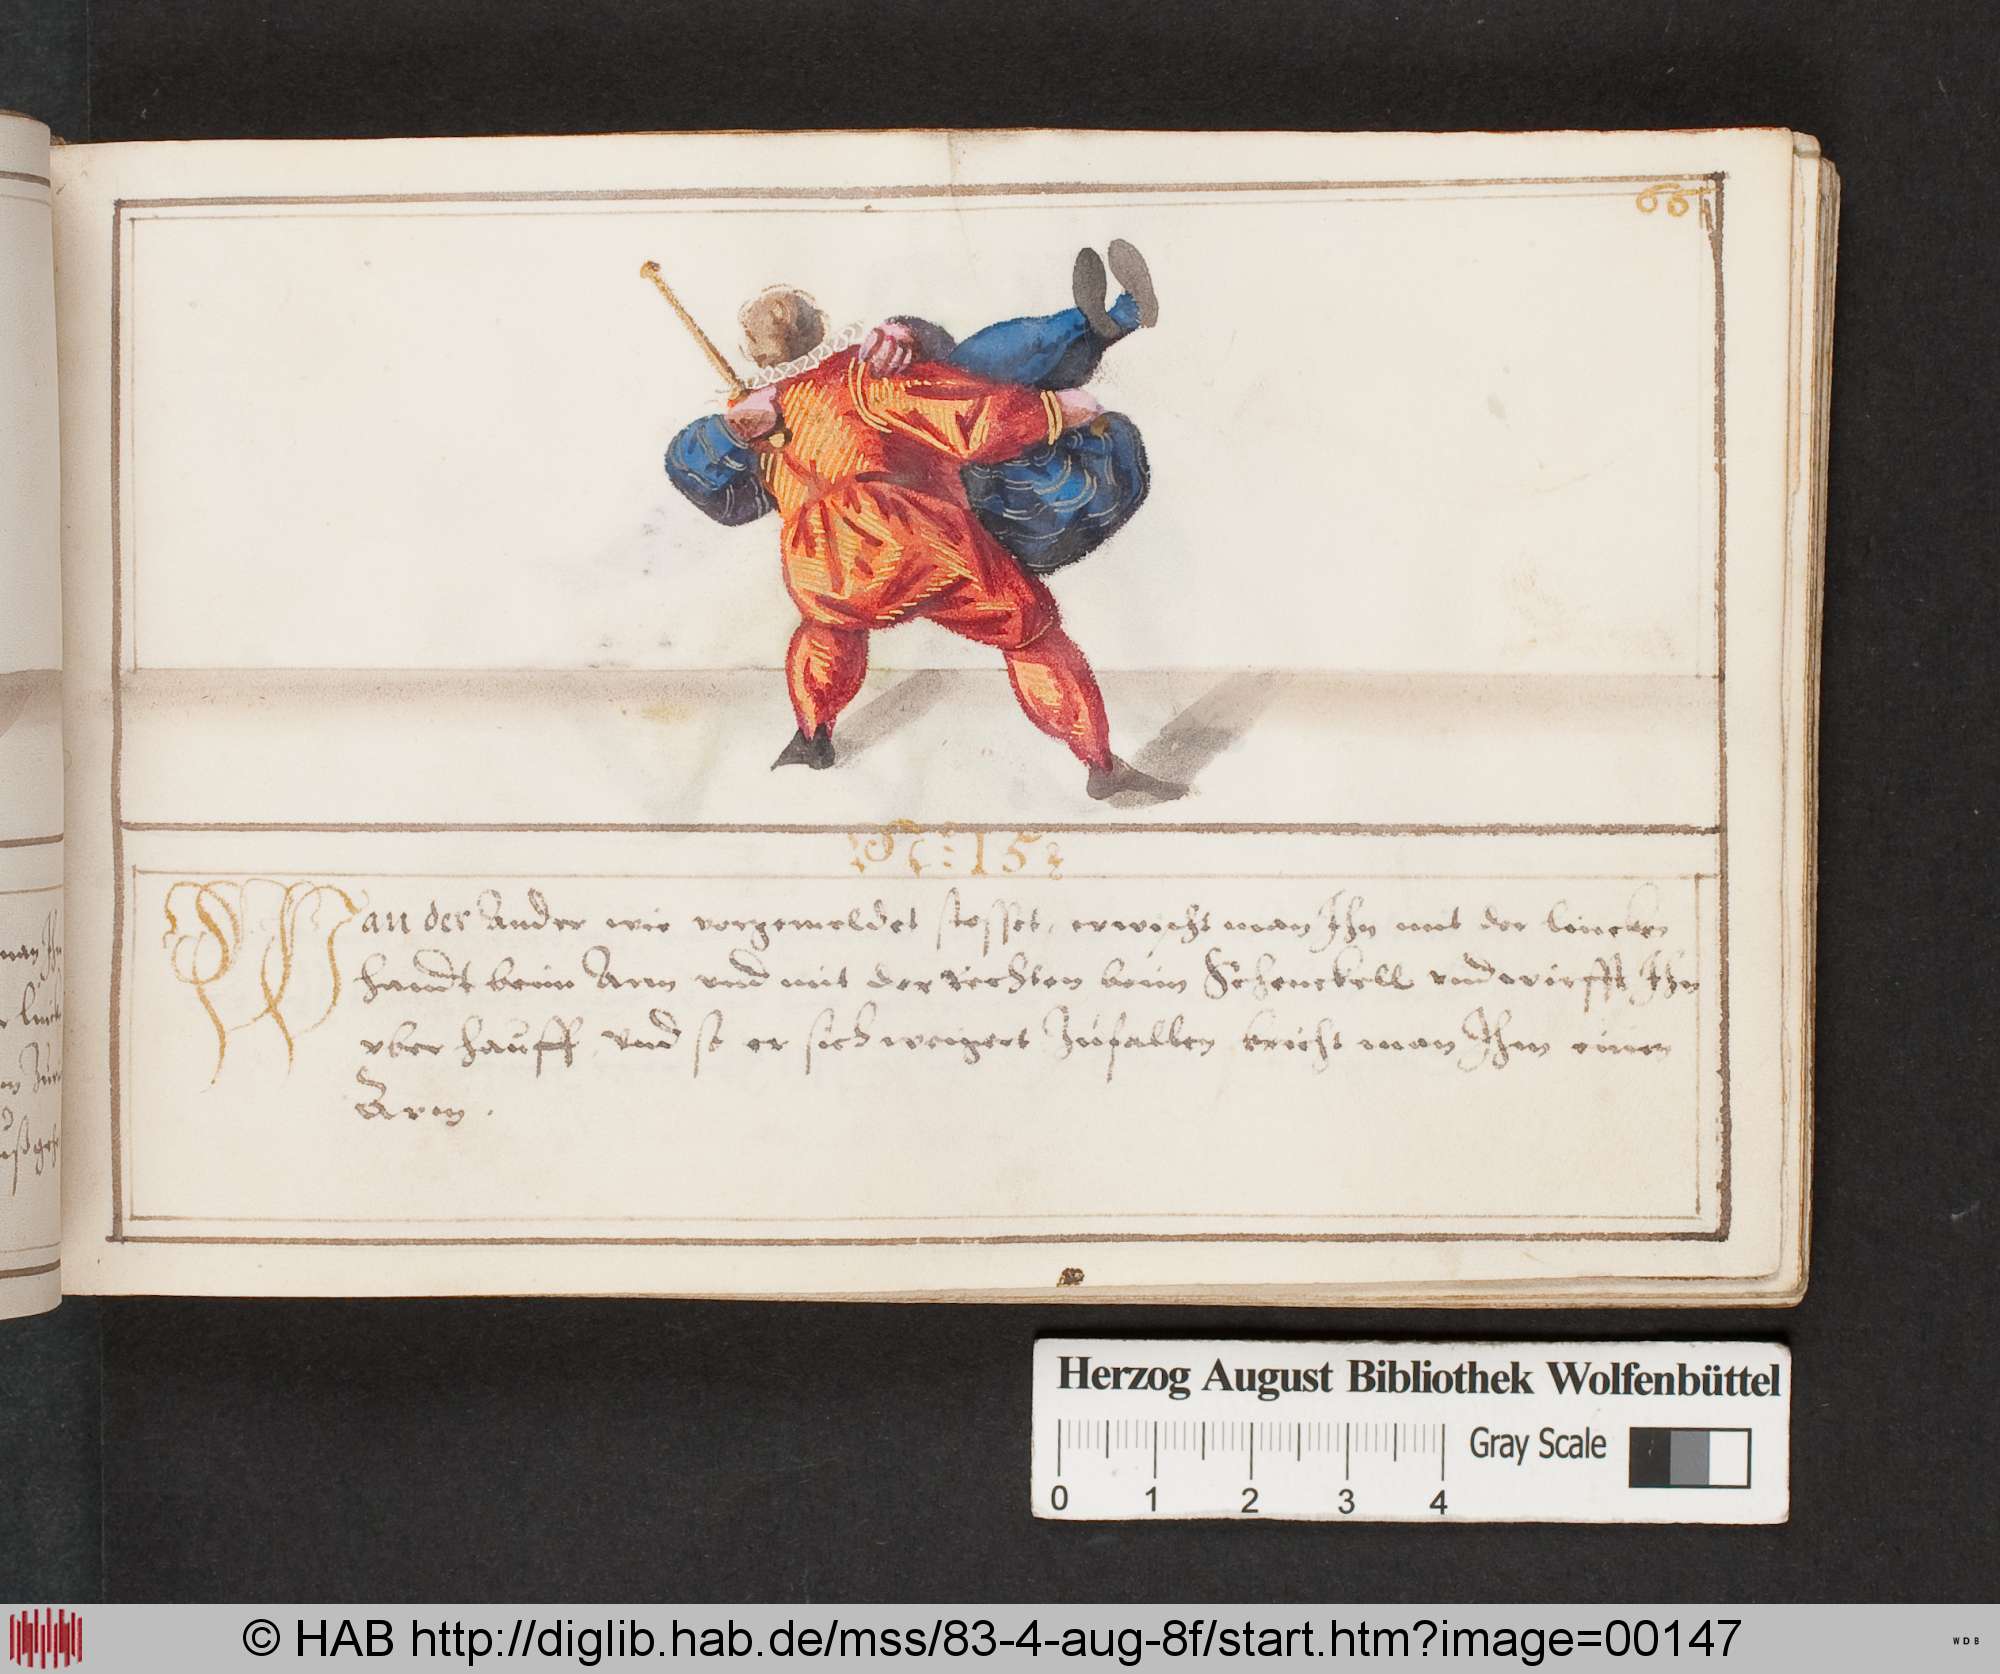 66
St: 15
Wan der Ander wie vorgemeldet stosset, erwischt man Ihn mit der lincken
handt beim Arm vnd mit der rechten beim Schenckell vnd wirfft Ihn
vber hauff, vnd so er sich weigert Zufallen bricht man Ihm einen
Arm.
man Ihn
Herzog August Bibliothek Wolfenbüttel
Gray Scale
0 1 2 3 4
© HAB http://diglib.hab.de/mss/83-4-aug-8f/start.htm?image=00147
WDB